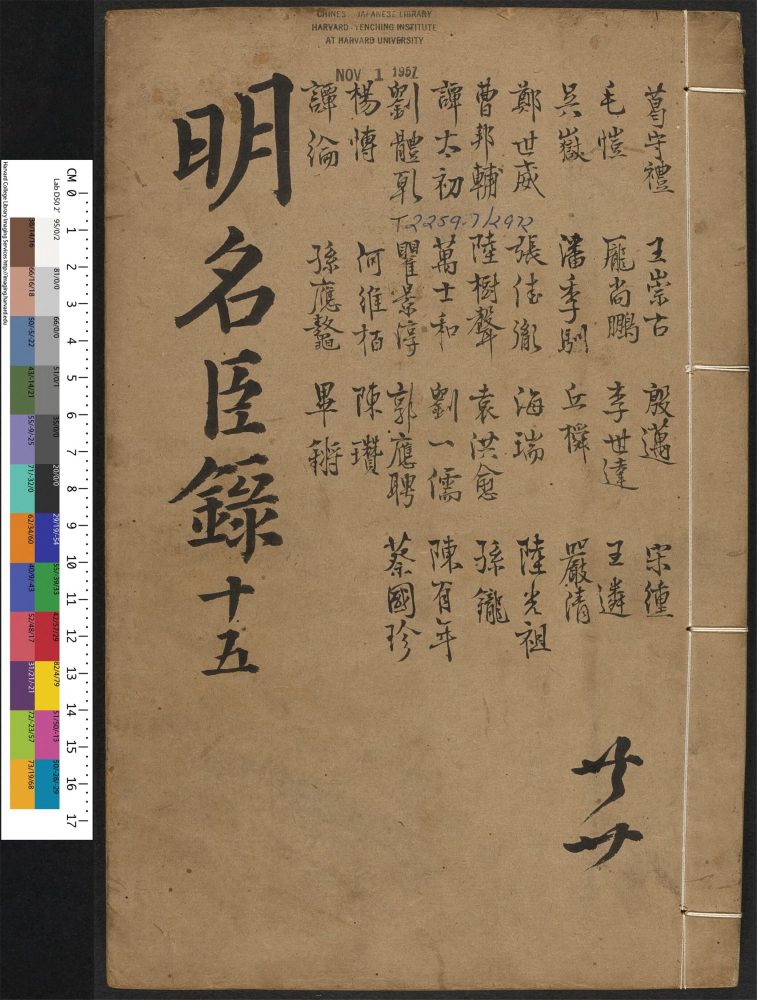 CHINESE-JAPANESE LIBRARY
HARVARD-YENCHING INSTITUTE
AT HARVARD UNIVERSITY
NOV 1 1957
葛守禮 王崇古 殷邁 宋纁
毛愷 龐尚鵬 李世達 王遴
吳嶽 潘季馴 丘橓 嚴清
鄭世威 張佳胤 海瑞 陸光祖
曹邦輔 陸樹聲 袁洪愈 孫鑨
譚大初 萬士和 劉一儒 陳有年
劉體乾 瞿景淳 郭應聘 蔡國珍
楊博 何維栢 陳瓚
譚綸 孫應鰲 畢鏘
T2259.7/2972
明名臣錄十五
CM 0 1 2 3 4 5 6 7 8 9 10 11 12 13 14 15 16 17
Harvard College Library Imaging Services http://imaging.harvard.edu